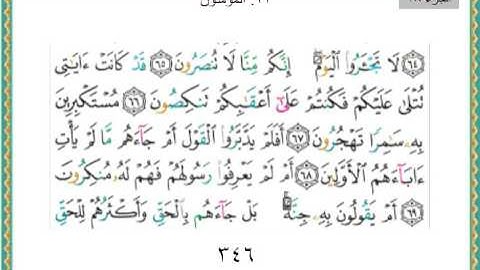 المؤمنون
٦٤ لَا تَجْـَٔرُوا۟ ٱلْيَوْمَ ۖ إِنَّكُم مِّنَّا لَا تُنصَرُونَ ٦٥ قَدْ كَانَتْ ءَايَٰتِى
تُتْلَىٰ عَلَيْكُمْ فَكُنتُمْ عَلَىٰٓ أَعْقَٰبِكُمْ تَنكِصُونَ ٦٦ مُسْتَكْبِرِينَ
بِهِۦ سَٰمِرًا تَهْجُرُونَ ٦٧ أَفَلَمْ يَدَّبَّرُوا۟ ٱلْقَوْلَ أَمْ جَآءَهُم مَّا لَمْ يَأْتِ
ءَابَآءَهُمُ ٱلْأَوَّلِينَ ٦٨ أَمْ لَمْ يَعْرِفُوا۟ رَسُولَهُمْ فَهُمْ لَهُۥ مُنكِرُونَ
٦٩ أَمْ يَقُولُونَ بِهِۦ جِنَّةٌۢ ۚ بَلْ جَآءَهُم بِٱلْحَقِّ وَأَكْثَرُهُمْ لِلْحَقِّ
٣٤٦